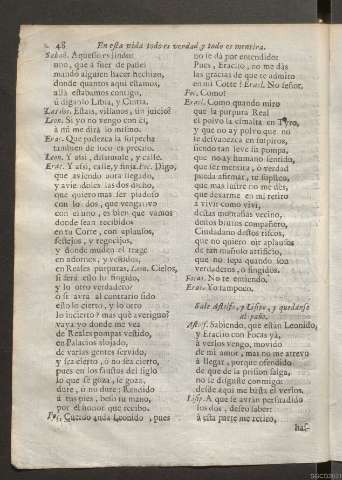 48 En esta vida todo es verdad, y todo es mentira.
Sabañ. Aquesso es lindo:
uno, que à fuer de
mandò alguien hacer hechizo,
donde quantos aqui estamos,
allà estabamos contigo,
ù digalo Libia, y Cintia.
Las dos. Estais, villanos, sin juicio?
Leon. Si yo no vengo con èl,
à mì me dirà lo mismo.
Erac. Que padezca la sospecha
tambien de loco es preciso.
Leon. Y assi, dissimule, y calle.
Erac. Y assi, calle, y finja. Foc. Digo,
que aviendo aora llegado,
y aviendoles las dos dicho,
que quiero mas ser piadoso
con los dos, que vengativo
con el uno, es bien que vamos
donde sean recibidos
en tu Corte, con aplausos,
festejos, y regocijos,
y donde muden el trage
en adornes, y vestidos,
en Reales purpuras. Leon. Cielos,
si serà esto lo fingido,
y lo otro verdadero?
ò si avrà al contrario sido
esto lo cierto, y lo otro
lo incierto? mas què averiguo?
vaya yo donde me vea
de Reales pompas vestido,
en Palacios alojado,
de varias gentes servido,
y sea cierto, ò no sea cierto,
pues en los faustos del siglo
lo que se goza, se goza,
dure, ù no dure: Rendido
à tus pies, beso tu mano,
por el honor que recibo.
Foc. Cuerdo anda Leonido, pues
no se dà por entendido:
Pues, Eraclio, no me dàs
las gracias de que te admito
en mi Corte? Eracl. No señor.
Foc. Como?
Eracl. Como quando miro
que la purpura Real
el polvo la esmalta en Tyro,
y que no ay polvo que no
se desvanezca en suspiros,
siendo tan leve su pompa,
que no ay humano sentido,
que ser mentira, ò verdad
pueda afirmar, te suplico,
que mas lustre no me dès,
que dexarme en mi retiro
à vivir como viví,
destas montañas vecino,
destos brutos compañero,
Ciudadano destos riscos,
que no quiero oir aplausos
de tan mañoso artificio,
que no sepa quando son
verdaderos, ò fingidos.
Focas. No te entiendo.
Erac. Yo tampoco.
Sale Astolfo, y Lisipo, y quedanse
al paño.
Astolf. Sabiendo, que estàn Leonido,
y Eraclio con Focas yà,
à verlos vengo, movido
de mi amor, mas no me atrevo
à llegar, porque ofendido
de que de la prision salga,
no se disguste conmigo:
desde aqui me basta el verlos.
Lisip. A que se avràn persuadido
los dos, deseo saber:
à esta parte me retiro,
has-